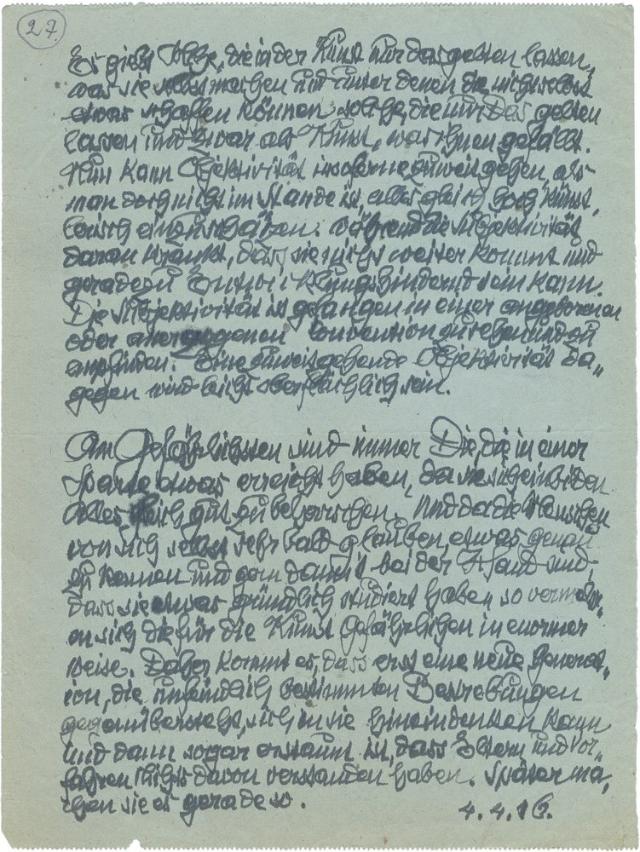 27
Es giebt Solche, die in der Kunst nur das gelten lassen,
was sie selbst machen und unter denen die nicht selbst
etwas schaffen können solche, die nur Das gelten
lassen und zwar als Kunst, was ihnen gefällt.
Nun kann Objektivität insoferne zuweit gehen, als
man doch nicht im Stande ist, alles gleich hoch künst,
lerisch einzuschätzen. Während die Subjektivität
daran krankt, dass sie nicht weiter kommt und
geradezu Entwicklungshindernd sein kann.
Die Subjektivität ist gefangen in einer angeborenen
oder anerzogenen Convention zu sehen und zu
empfinden. Eine zuweitgehende Objektivität da„
gegen wird leicht oberflächlich sein.
Am Gefährlichsten sind immer Die, die in einer
Sparte etwas erreicht haben, da sie sich einbilden
alles gleich gut zu beherrschen. Und da die Menschen
von sich selbst sehr bald glauben, etwas genau
zu kennen und gern damit bei der Hand sind
dass sie etwas gründlich studiert haben so vermeh„
en sich die für die Kunst Gefährlichen in enormer
weise. Daher kommt es, dass erst eine neue Generat„
ion, die unfeindlich bestimmten Bestrebungen
gegenübersteht, sich in sie hineindenken kann
und dann sogar erstaunt ist, dass Eltern und Vor„
fahren nichts davon verstanden haben. Später ma„
chen sie es gerade so.
4.4.16.